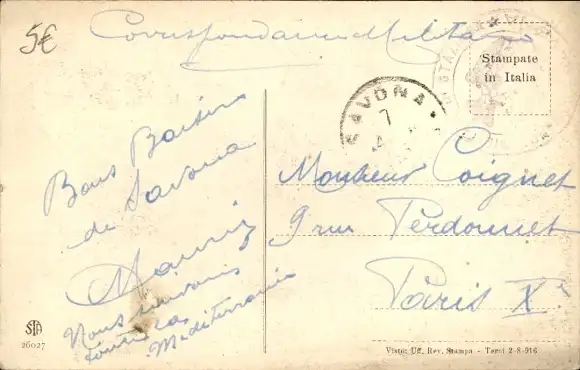 5€
Correspondance Militaire
Stampate
in Italia
SAVONA
7
Bons Baisers
de Savona
Maurice
Nous suivons
toute la
Méditerranée
Monsieur Coignet
9 rue Perdonnet
Paris X
STA
26027
Visto: Uff. Rev. Stampa - Terni 2-8-916